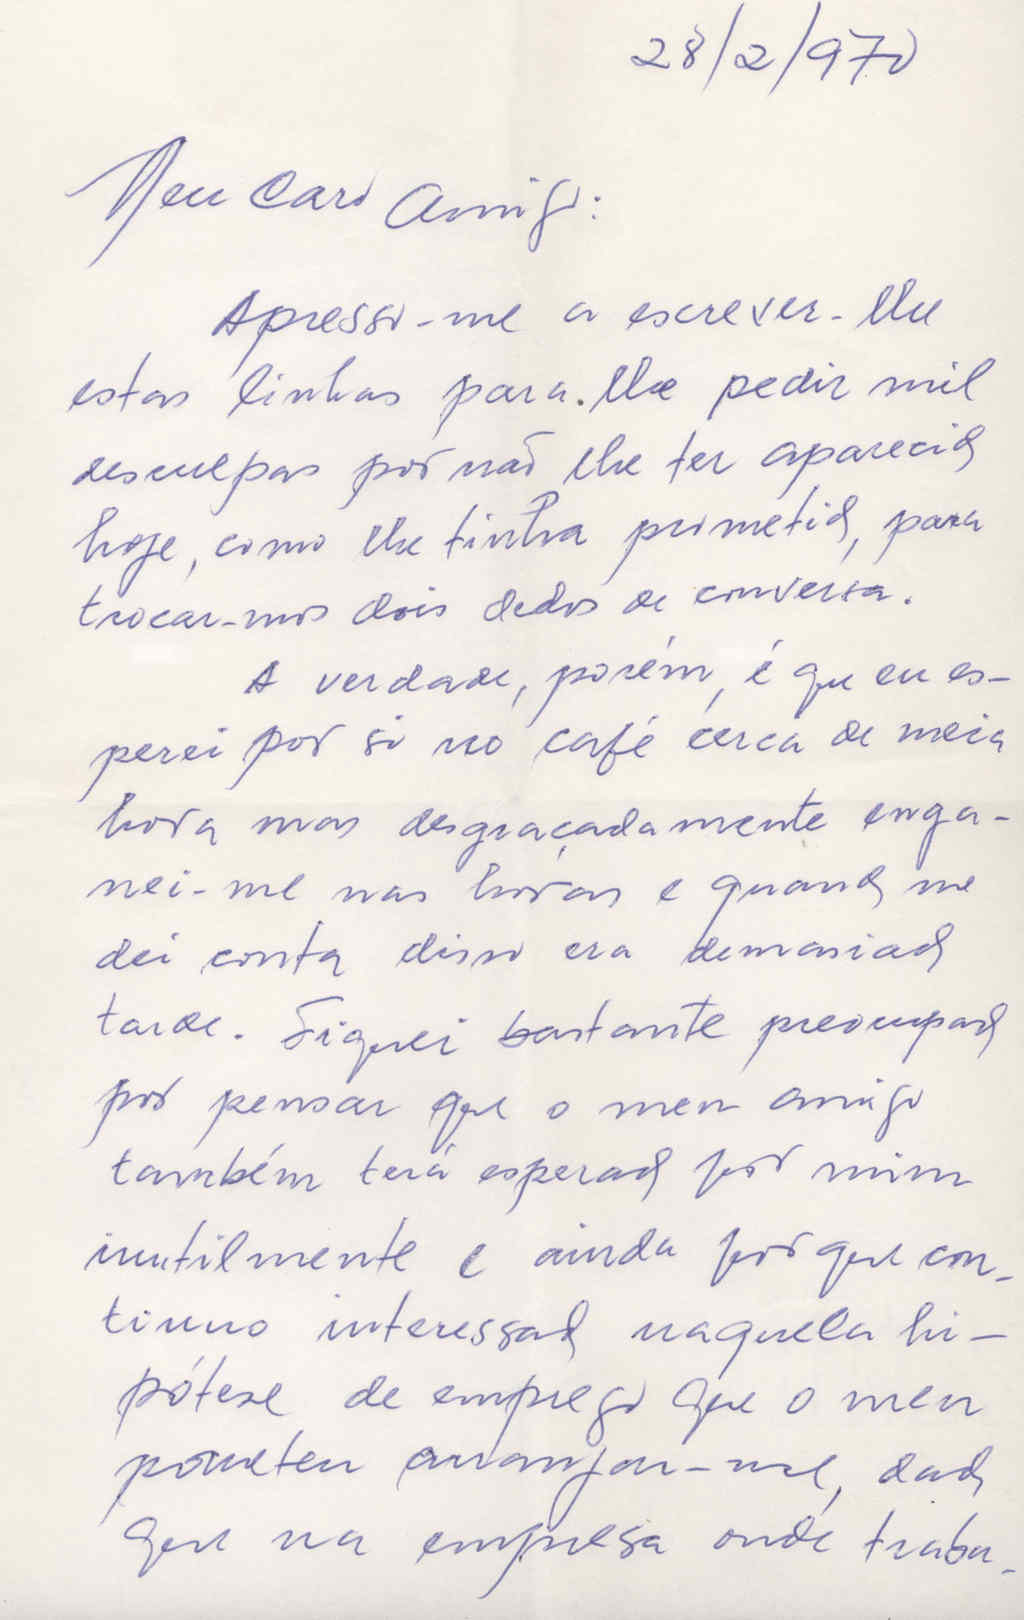 28/2/970
Meu Caro Amigo:
Apresso-me a escrever-lhe
estas linhas para-lhe pedir mil
desculpas por não lhe ter aparecido
hoje, como lhe tinha prometido, para
trocar-mos dois dedos de conversa.
A verdade, porém, é que eu es-
perei por si no café cerca de meia
hora mas desgraçadamente enga-
nei-me nas horas e quando me
dei conta disso era demasiado
tarde. Fiquei bastante preocupado
por pensar que o meu amigo
também terá esperado por mim
inutilmente e ainda por que con-
tinuo interessado naquela hi-
pótese de emprego que o meu
prometeu arranjar-me, dado
que na empresa onde traba-